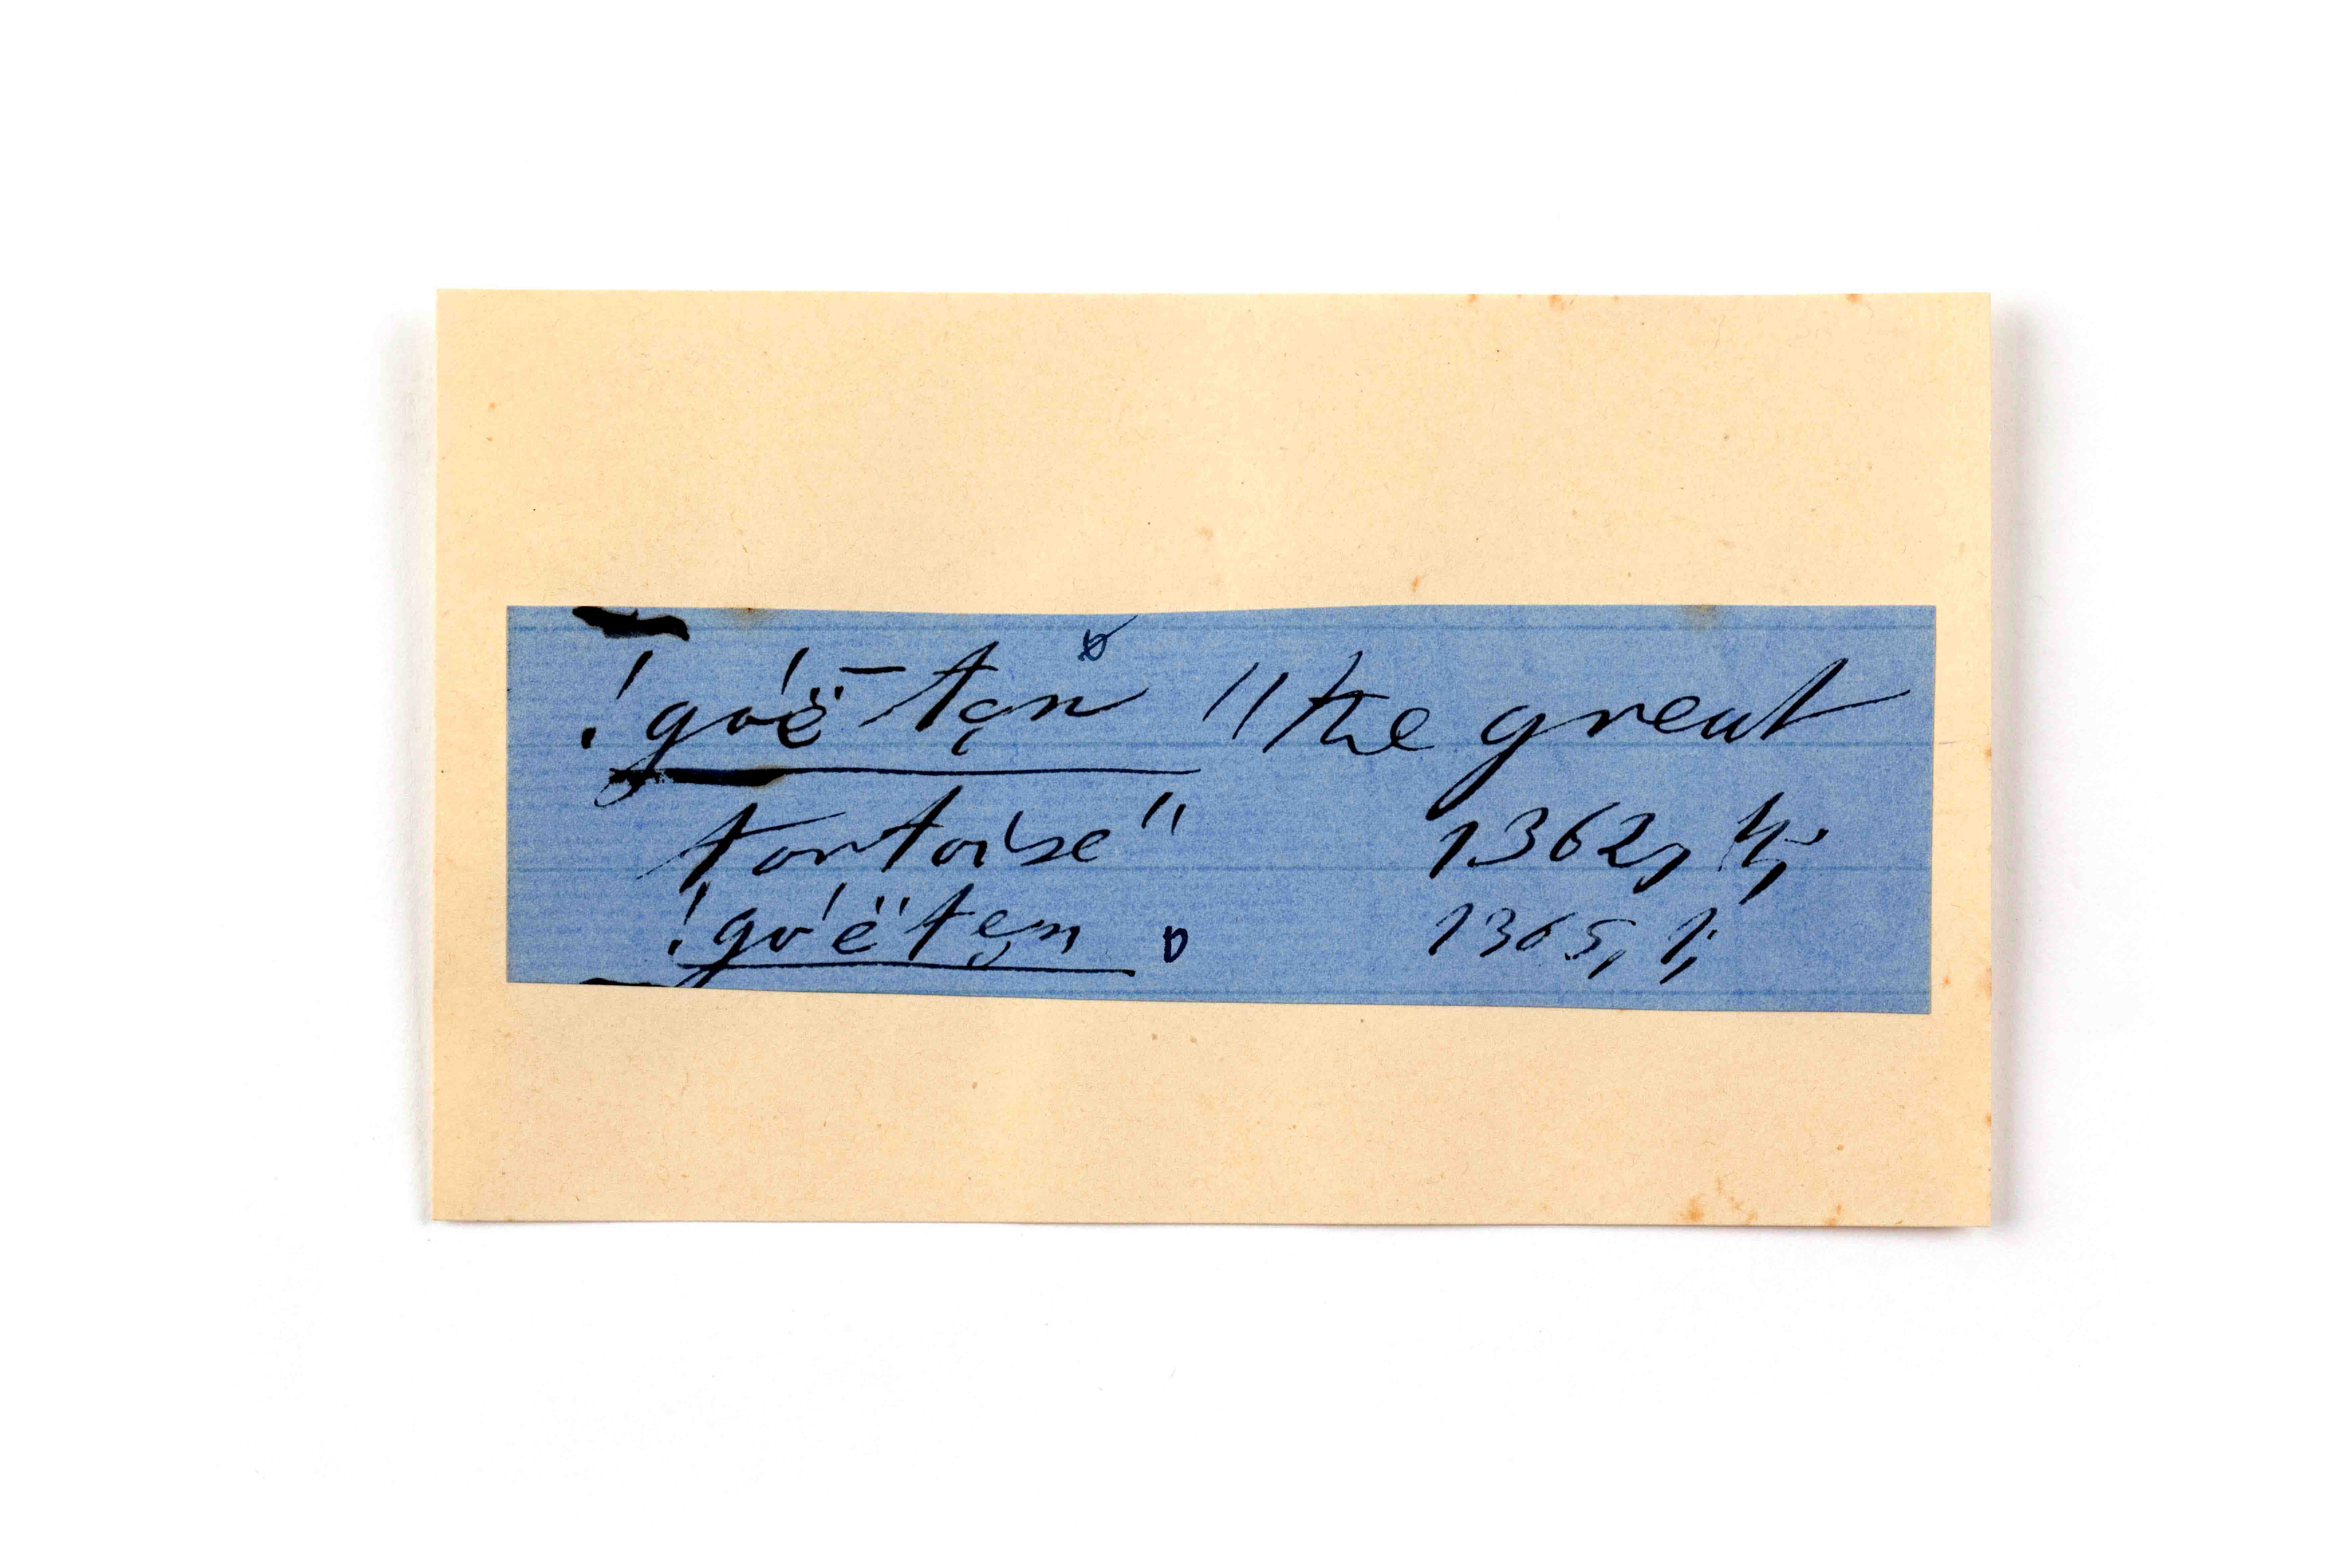 !góë̤‾tẹn "the great
tortoise" 1362, 4;
!góëtẹn 1365, 1;